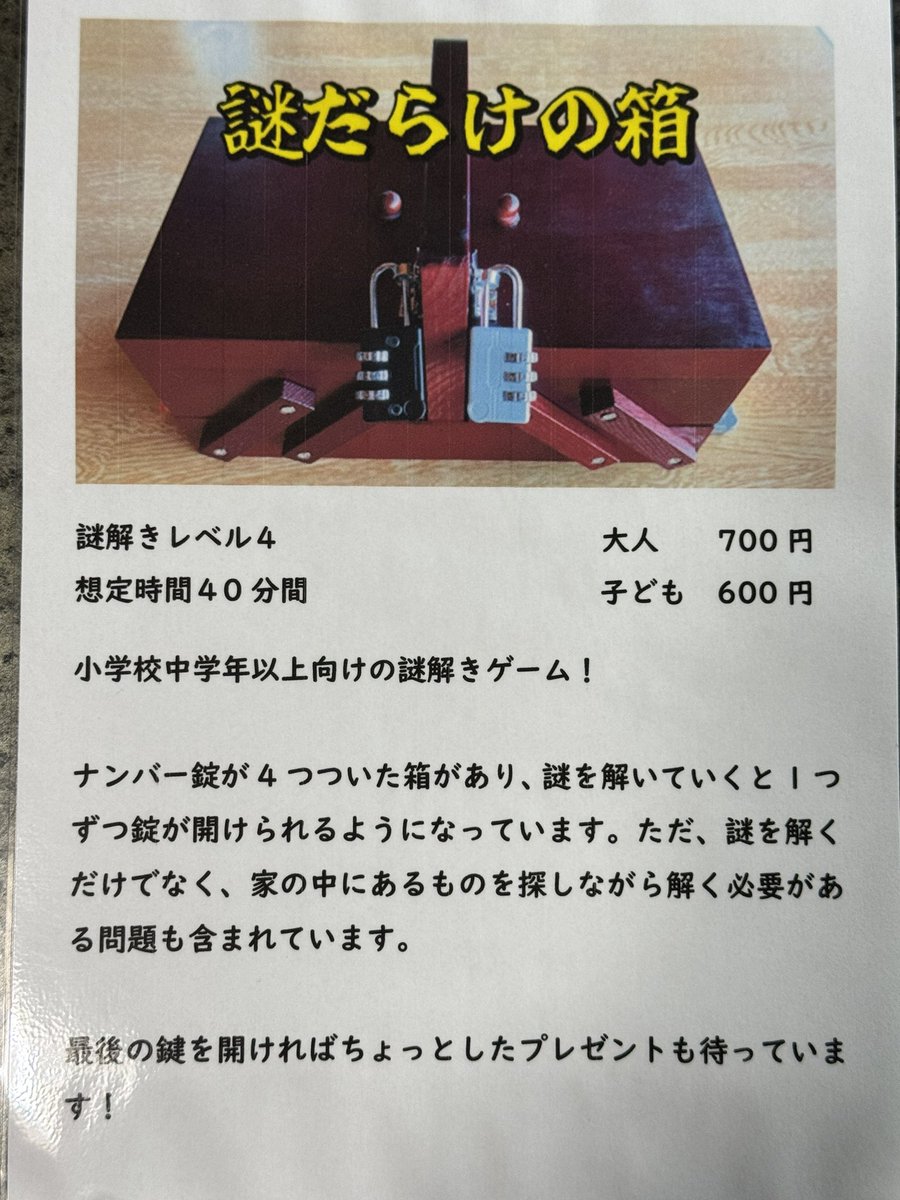 謎だらけの箱
謎解きレベル4 大人 700円
想定時間40分間 子ども 600円
小学校中学年以上向けの謎解きゲーム！
ナンバー錠が4つついた箱があり、謎を解いていくと1つ
ずつ錠が開けられるようになっています。ただ、謎を解く
だけでなく、家の中にあるものを探しながら解く必要があ
る問題も含まれています。
最後の鍵を開ければちょっとしたプレゼントも待っていま
す！